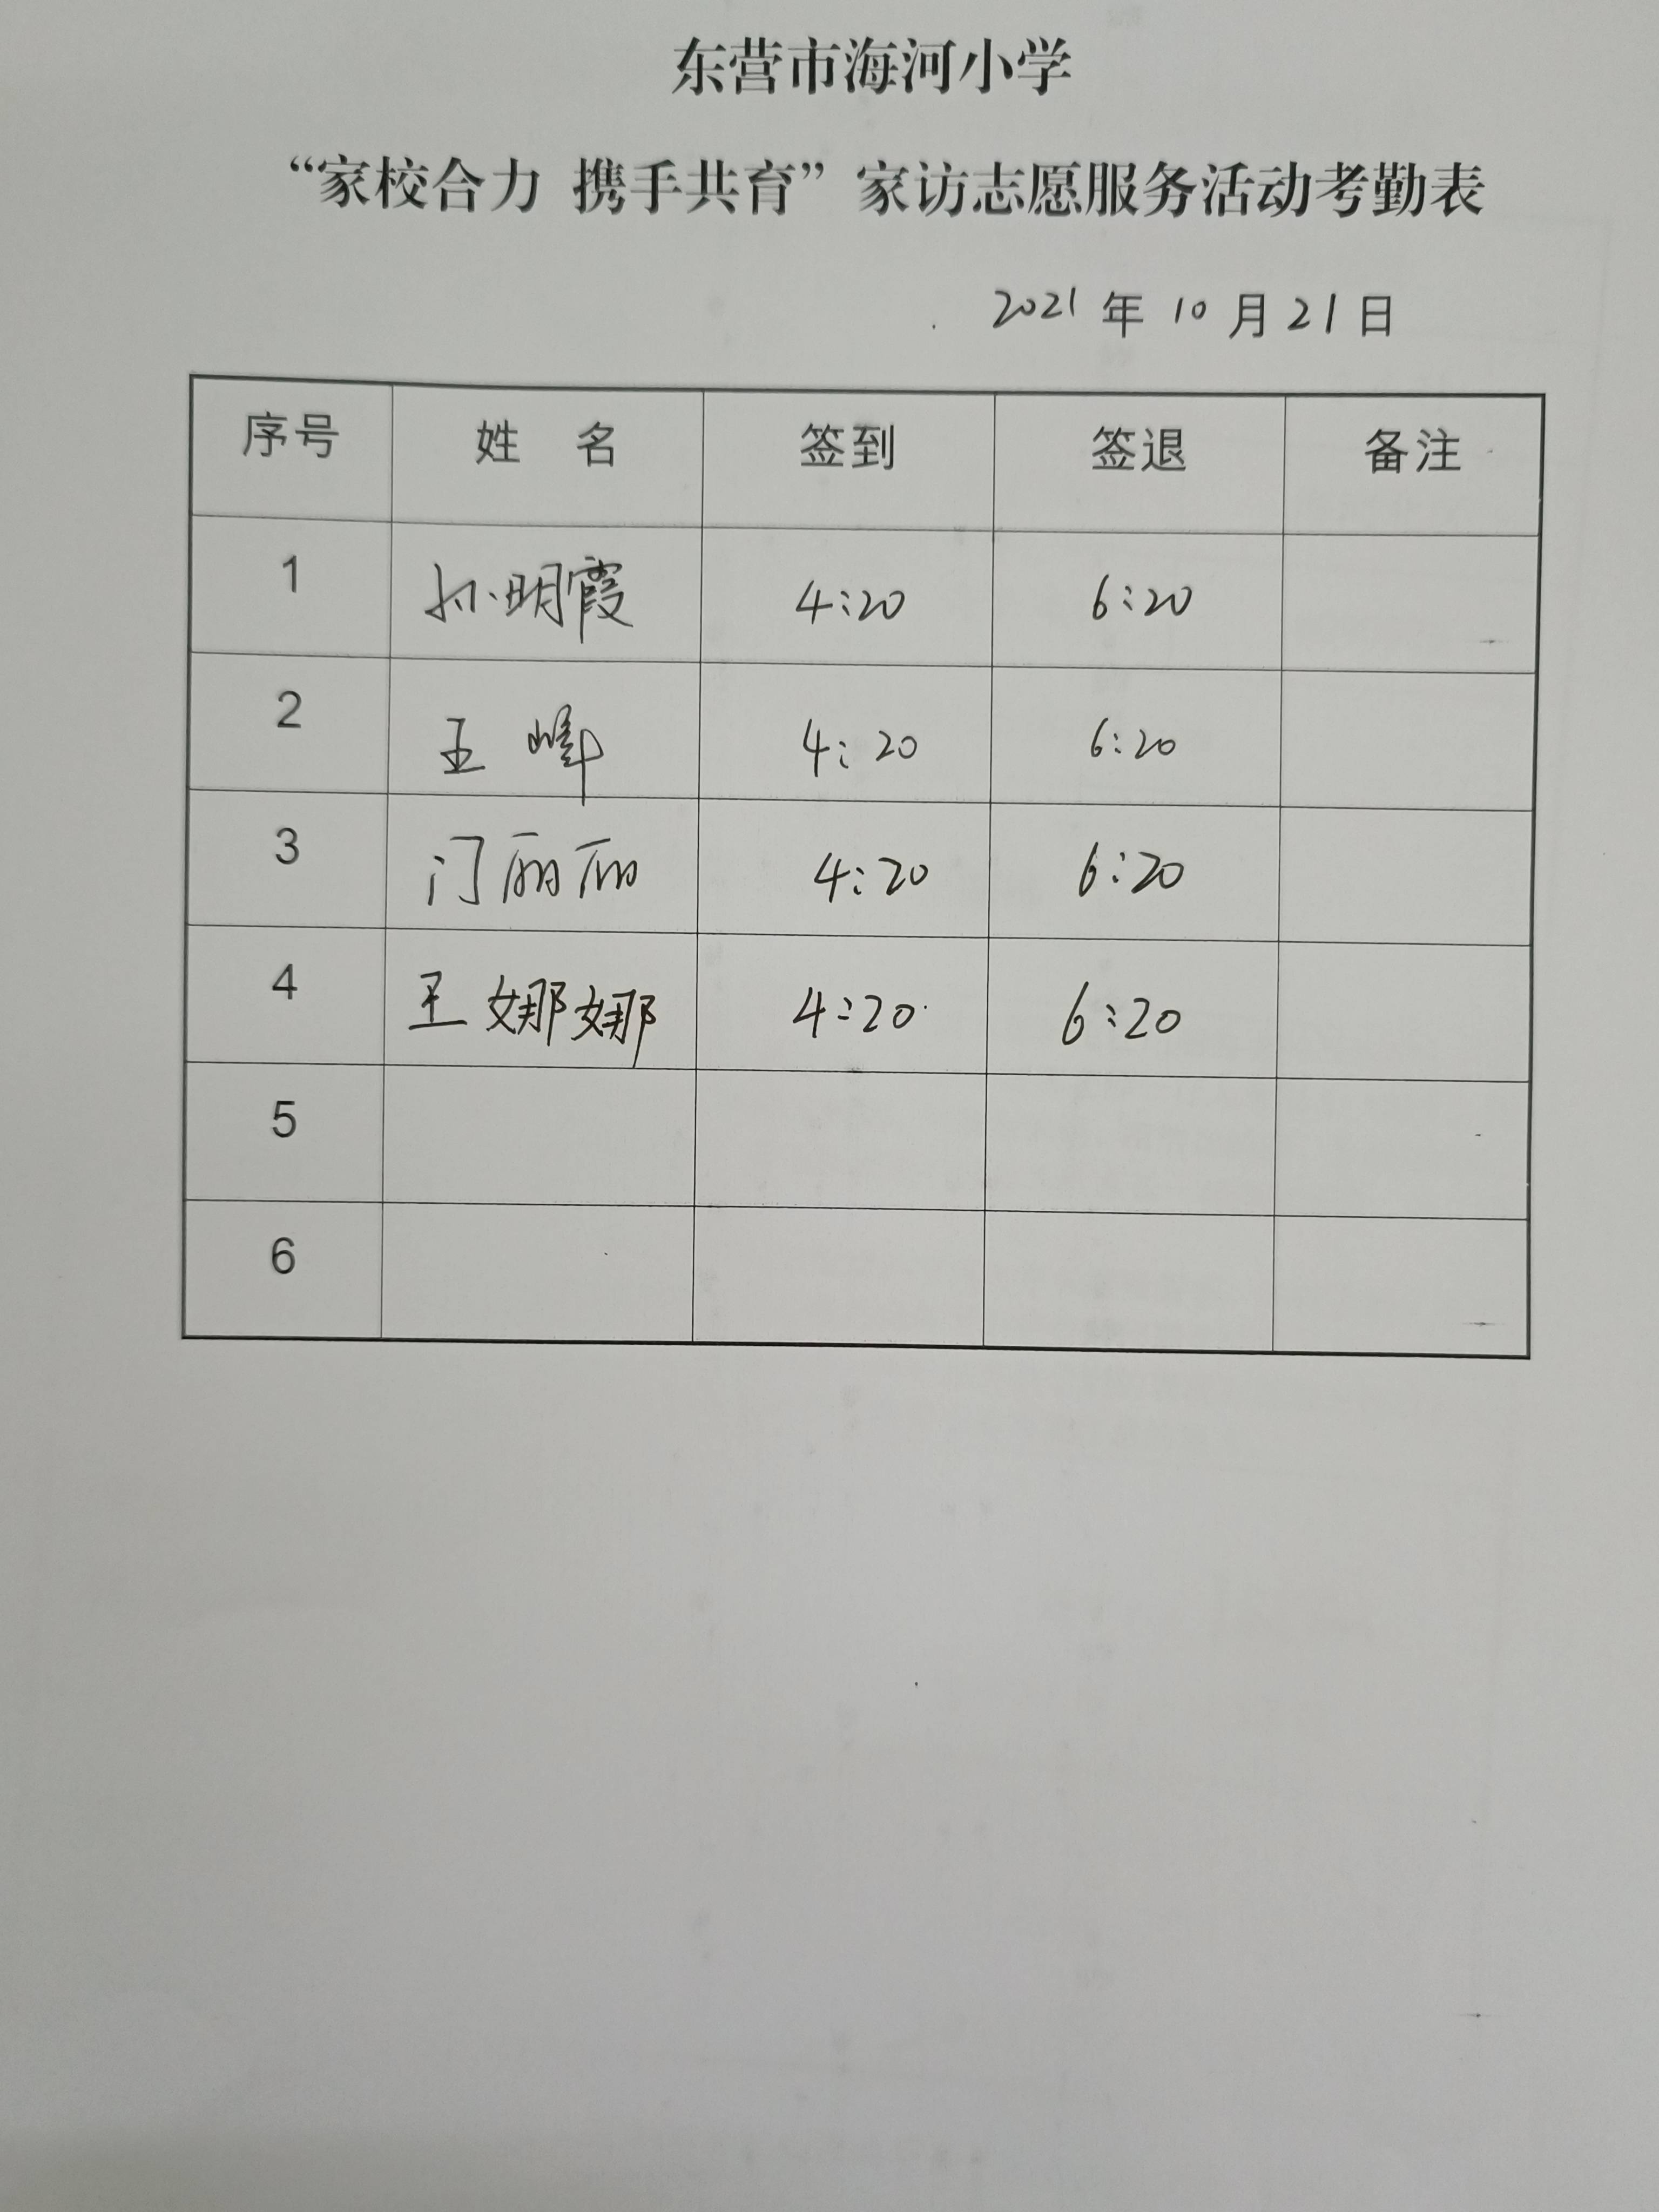 东营市海河小学
“家校合力 携手共育”家访志愿服务活动考勤表
2021 年 10 月 21 日
序号 姓 名 签到 签退 备注
1 孙明霞 4:20 6:20
2 王 峰 4:20 6:20
3 门丽丽 4:20 6:20
4 王娜娜 4:20 6:20
5
6